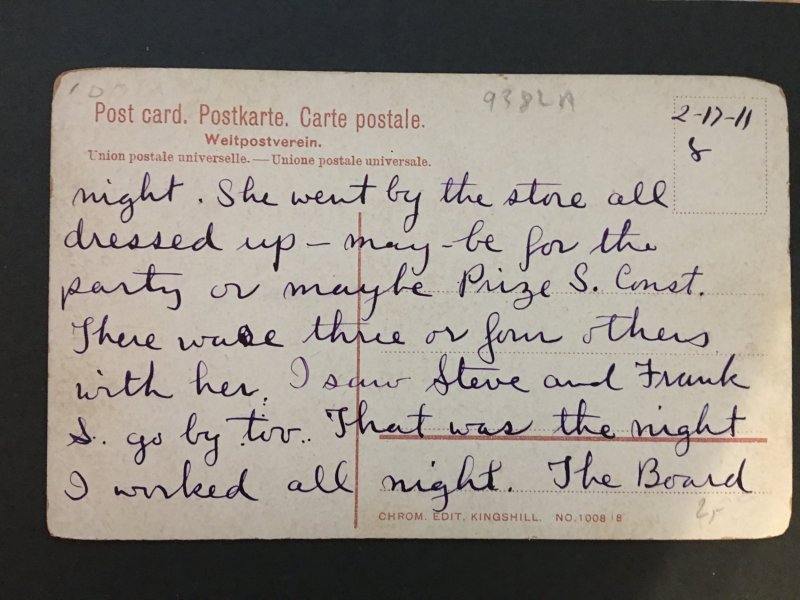 9382A
Post card. Postkarte. Carte postale.
Weltpostverein.
Union postale universelle. — Unione postale universale.
2-17-11
8
night. She went by the store all
dressed up – may-be for the
party or maybe Prize S. Const.
There were three or four others
with her. I saw Steve and Frank
S. go by too. That was the night
I worked all night. The Board
CHROM. EDIT, KINGSHILL. NO. 1008 8
2,-